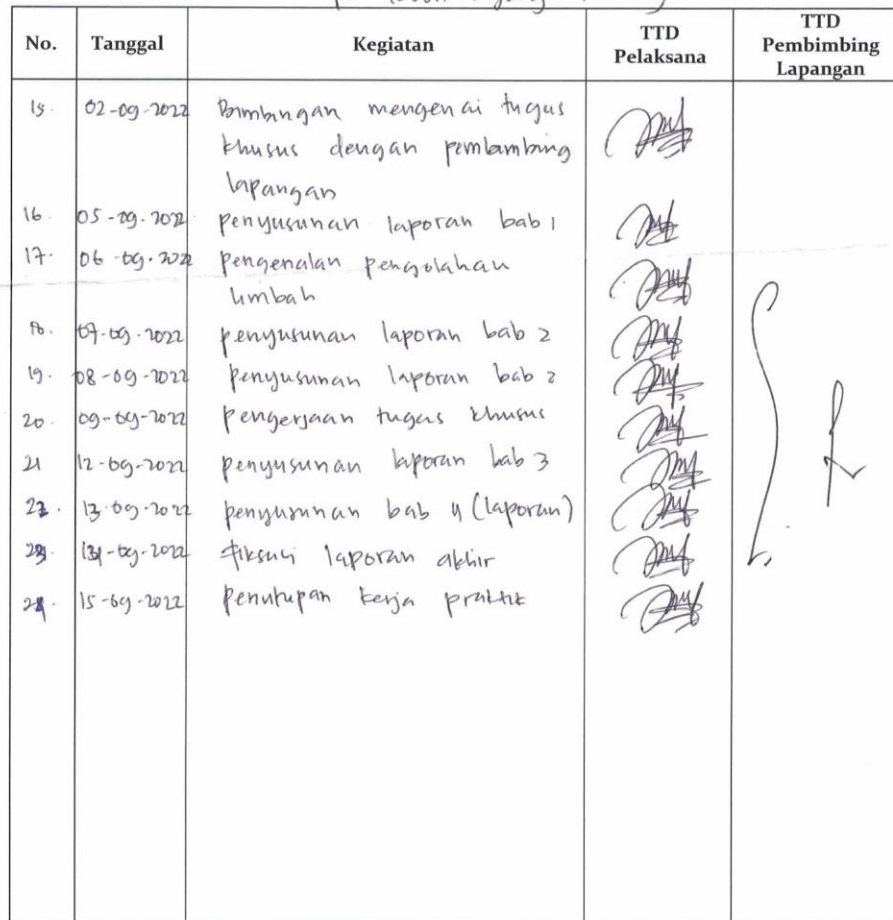 No. Tanggal Kegiatan TTD Pelaksana TTD Pembimbing Lapangan
15. 02-09-2022 Bimbingan mengenai tugas
khusus dengan pembimbing
lapangan
16. 05-09-2022 penyusunan laporan bab 1
17. 06-09-2022 pengenalan pengolahan
limbah
18. 07-09-2022 penyusunan laporan bab 2
19. 08-09-2022 penyusunan laporan bab 2
20. 09-09-2022 pengerjaan tugas khusus
21 12-09-2022 penyusunan laporan bab 3
22. 13-09-2022 penyusunan bab 4 (laporan)
23. 14-09-2022 fiksasi laporan akhir
24. 15-09-2022 penutupan kerja praktik